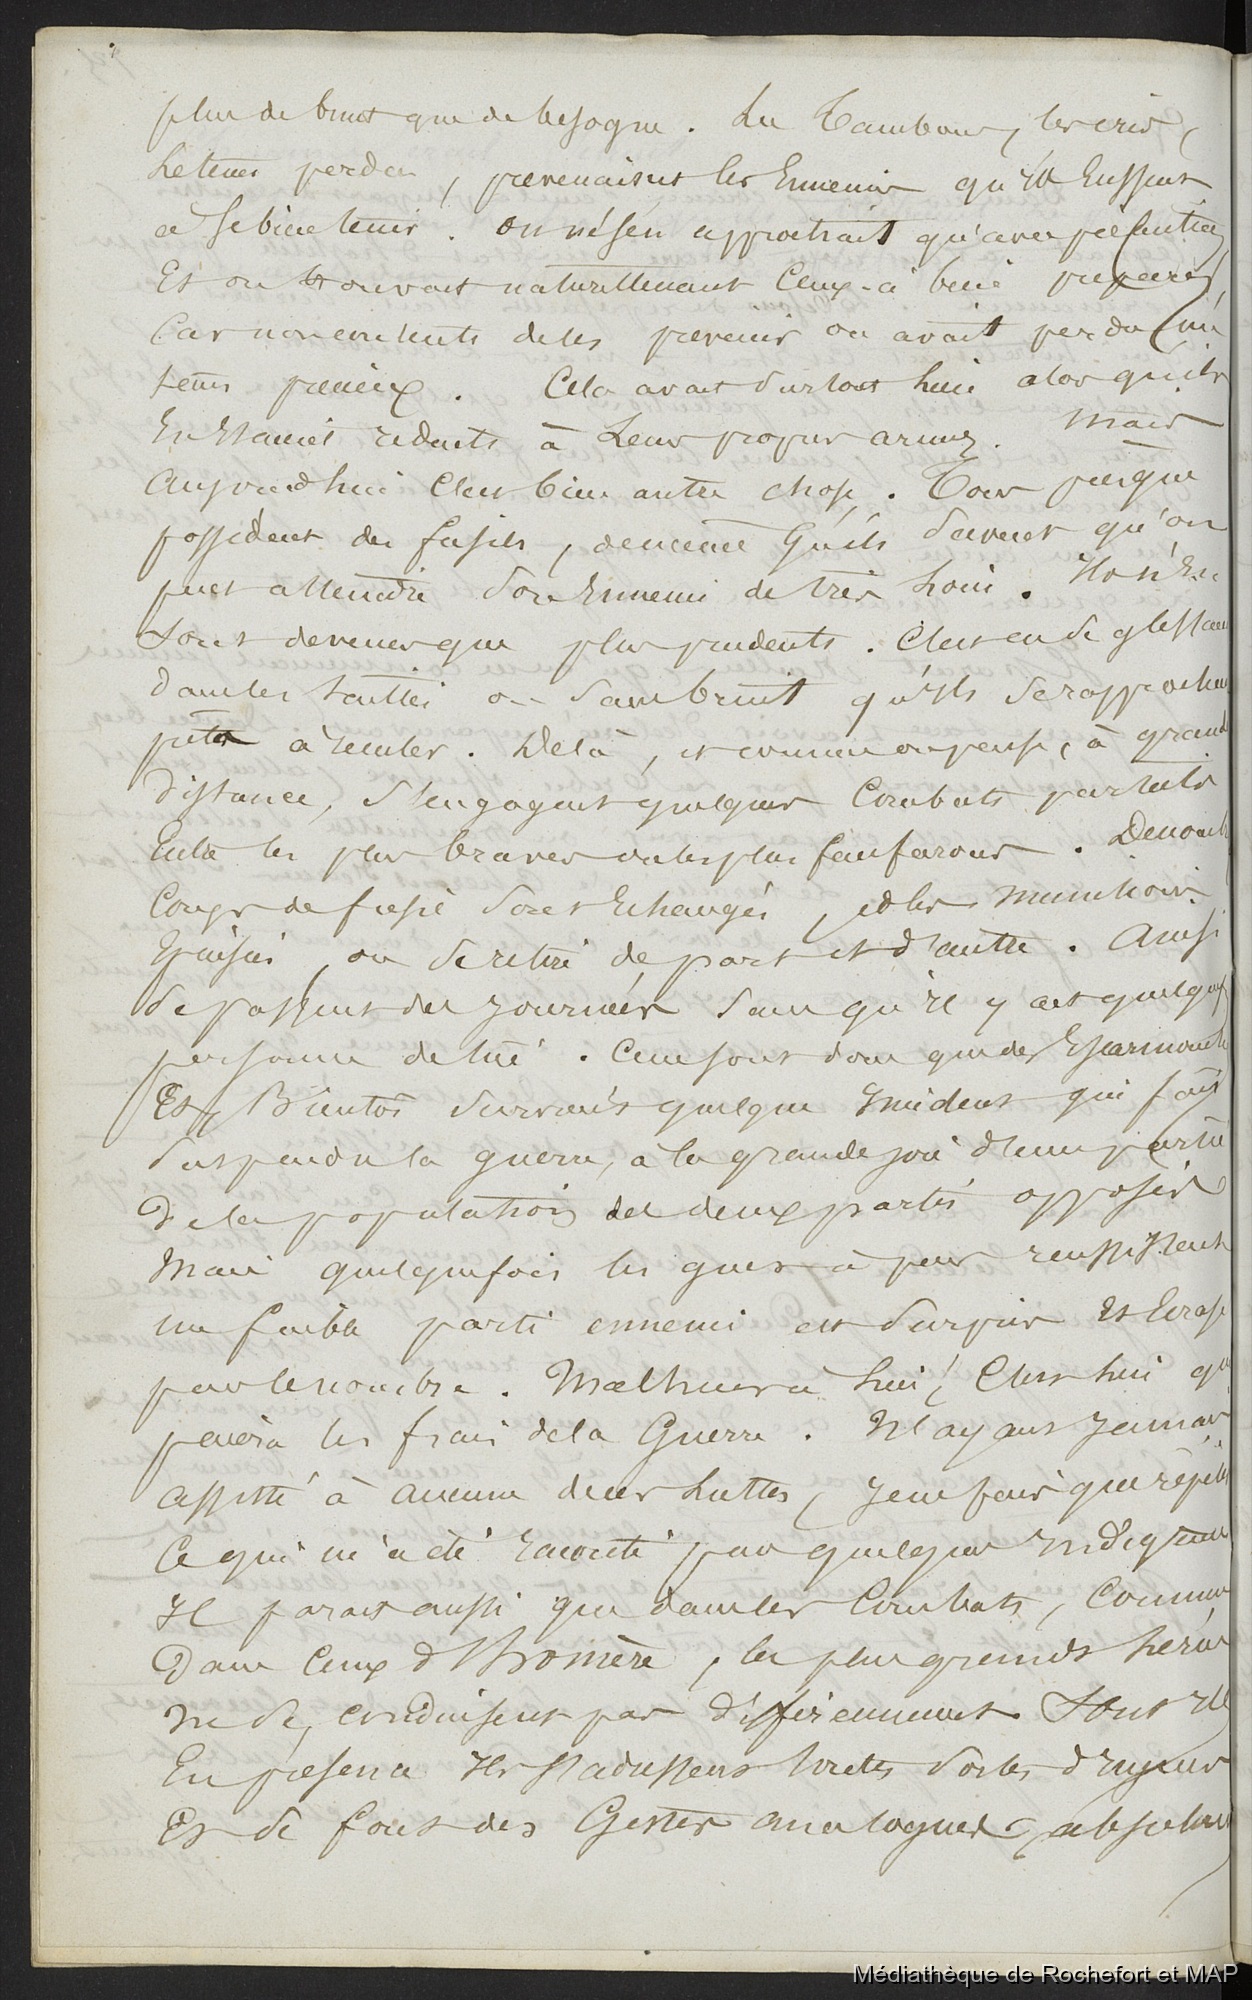 plus de bruit que de besogne. Les Tambours, les cris,
le tems perdu, prevenaient les Ennemis qu'ils Eussent
a se bien tenir. on ne s'en approchait qu'avec précaution
Et on trouvait naturellement Ceux-ci bien preparés,
Car non contents de les prevenir on avait perdu un
tems precieux. Cela avait surtout lieu alors qu'ils
En Etaient reduits à Leurs propres armes. Mais
Aujourd'hui C'est bien autre chose. Tous presque
possèdent des fusils, de même qu'ils savent qu'on
peut atteindre son Ennemi de très loin. Ils n'En
Sont devenus que plus prudents. C'est en se glissant
dans les taillis et sans bruit qu'ils se rapprochent
à sembler. De là, et comme on pense, à grande
distance, s'engagent quelques Combats partiels
Entre les plus braves ou les plus fanfarons. De nombreux
Coups de fusil sont Echangés, et les munitions
Epuisées, on se retire de part et d'autre. Ainsi
se passent des journées sans qu'il y ait quelques
personnes de tué. Ce ne sont donc que des Escarmouches
Et, Bientôt survient quelque Incident qui fait
suspendre la guerre, à la grande joie d'une partie
De la population des deux partis opposés
Mais quelquefois les guets-à-pens reussissent
un faible parti ennemi est surpris Et Ecrasé
par le nombre. Malheur à lui! C'est lui qui
paiera les frais de la Guerre. N'ayant Jamais
assisté à aucune de ces Luttes, je ne fais que répéter
Ce qui m'a été raconté par quelques Indigènes
Il parait aussi que dans les Combats, Comme
Dans Ceux d'Homère, les plus grands héros
ne se conduisent pas différemment. Sont ils
En présence Ils s'adressent toutes sortes d'injures
Et se font des Gestes analogues, absolument
Médiathèque de Rochefort et MAP